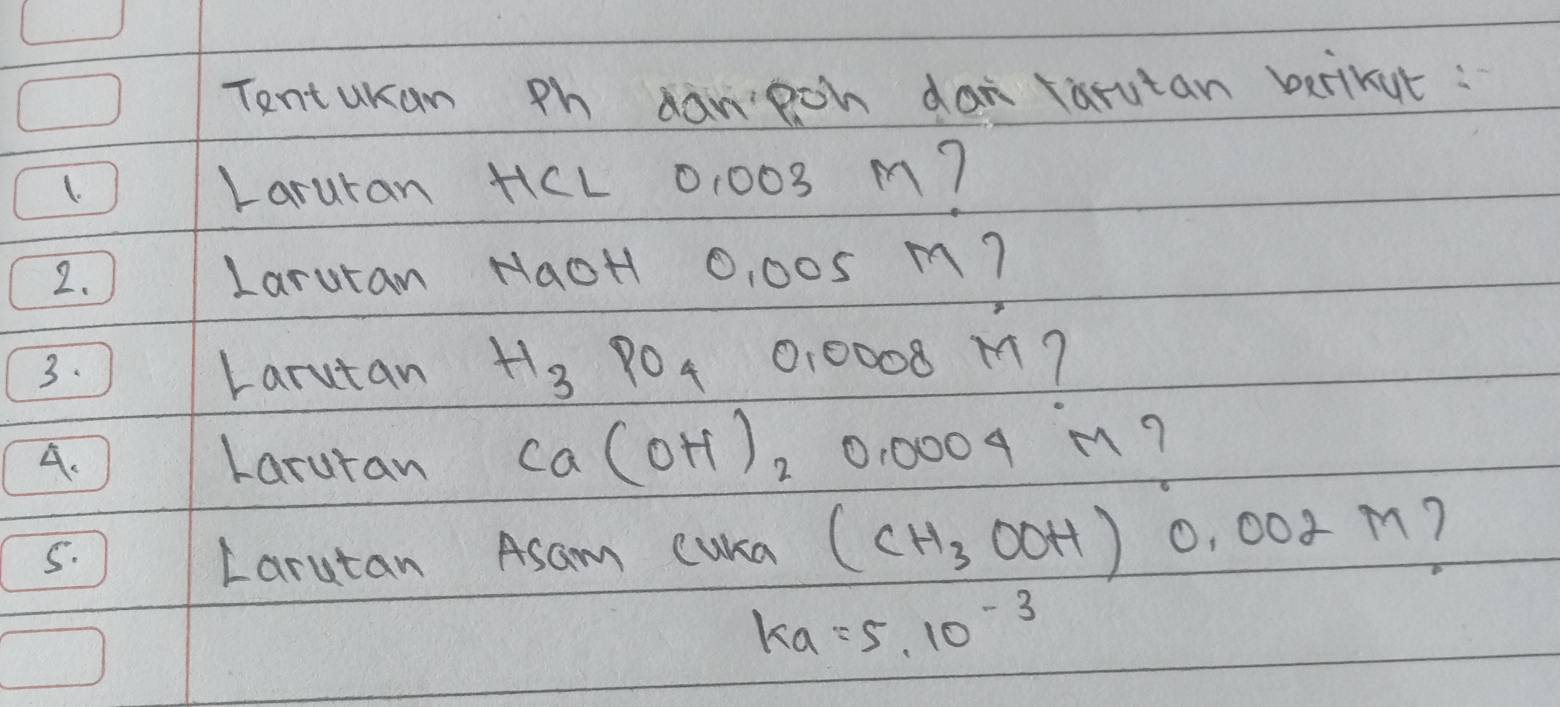 Tentukan Ph dan poh dari larutan berikut :-
1. Larutan HCL 0,003 M?
2. Larutan NaOH 0,005 M?
3. Larutan H₃ PO₄ 0,0008 M?
4. Larutan Ca(OH)₂ 0,0004 M?
5. Larutan Asam cuka (CH₃ OOH) 0,002 M?
ka = 5.10⁻³